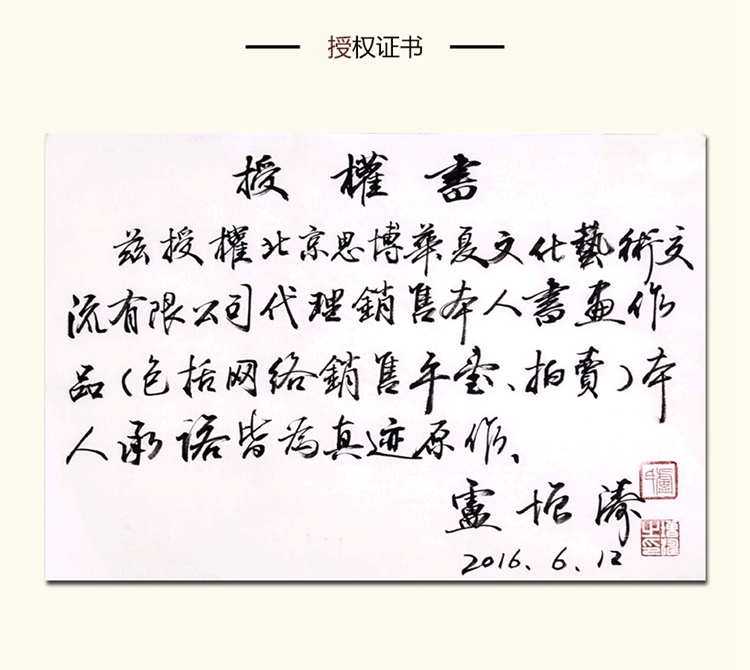 授权证书
授權書
兹授權北京思博華夏文化藝術交
流有限公司代理銷售本人書画作
品（包括网络銷售平台、拍賣）本
人承诺皆為真迹原作、
盧增濤
2016.6.12